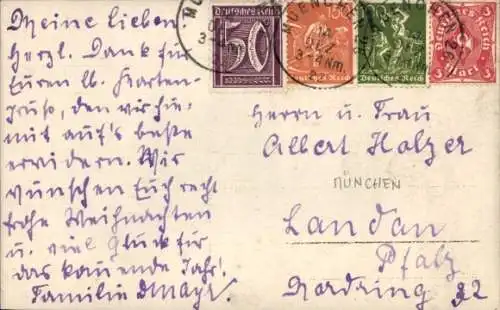 Meine lieben
Herzl. Dank für
Euren lb. Karten-
gruß, den wir hie-
mit auf's beste
erwidern. Wir
wünschen Euch recht
frohe Weihnachten
u. viel Glück für
das kommende Jahr!
Familie
MUENCHEN
3-4 Nm.
Deutsches Reich
50
MUENCHEN
3-4 Nm.
150
Deutsches Reich
Deutsches Reich
Deutsches Reich
3 Mark 3
Herrn u. Frau
Albert Holzer
MÜNCHEN
Landau
Pfalz
Nordring 22